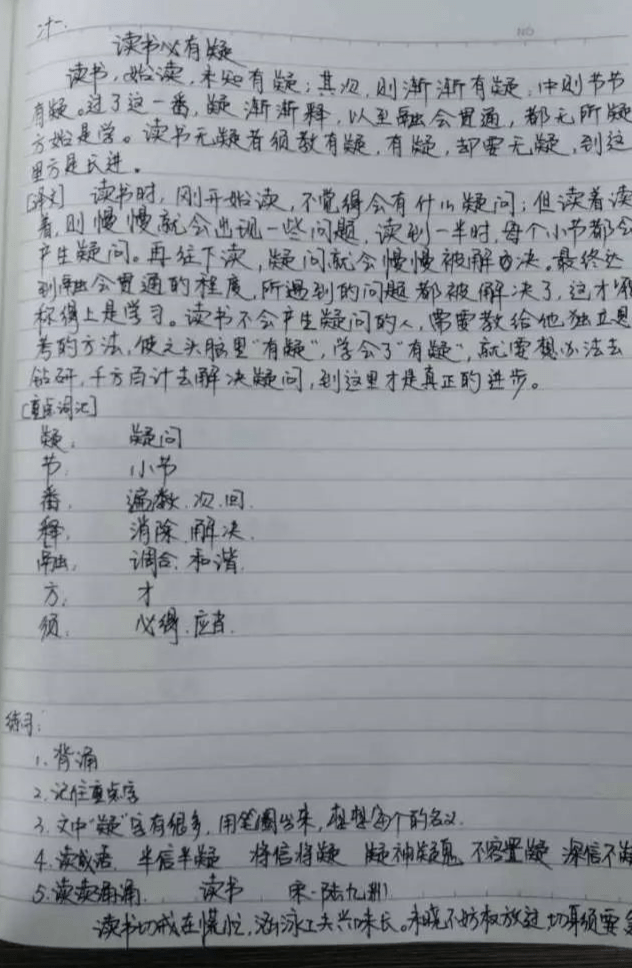 十一.
读书必有疑
读书,始读,未知有疑;其次,则渐渐有疑,中则节节
有疑。过了这一番,疑渐渐释,以至融会贯通,都无所疑
方始是学。读书无疑者须教有疑,有疑,却要无疑,到这
里方是长进。
[译文] 读书时,刚开始读,不觉得会有什么疑问;但读着读
着,则慢慢就会出现一些问题,读到一半时,每个小节都会
产生疑问。再往下读,疑问就会慢慢被解决。最终达
到融会贯通的程度,所遇到的问题都被解决了,这才能
称得上是学习。读书不会产生疑问的人,需要教给他独立思
考的方法,使之头脑里"有疑",学会了"有疑",就要想办法去
钻研,千方百计去解决疑问,到这里才是真正的进步。
[重点词汇]
疑: 疑问
节: 小节
番: 遍数.次.回.
释: 消除.解决.
融: 调合.和谐.
方: 才
须: 必得.应当.
练习:
1.背诵
2.记住重点字
3.文中"疑"字有很多,用笔圈出来,想想每个的含义.
4.读成语 半信半疑 将信将疑 疑神疑鬼 不容置疑 深信不疑
5.读读诵诵. 读书 宋·陆九渊
读书切戒在慌忙,涵泳工夫兴味长。未晓不妨权放过,切身须要急